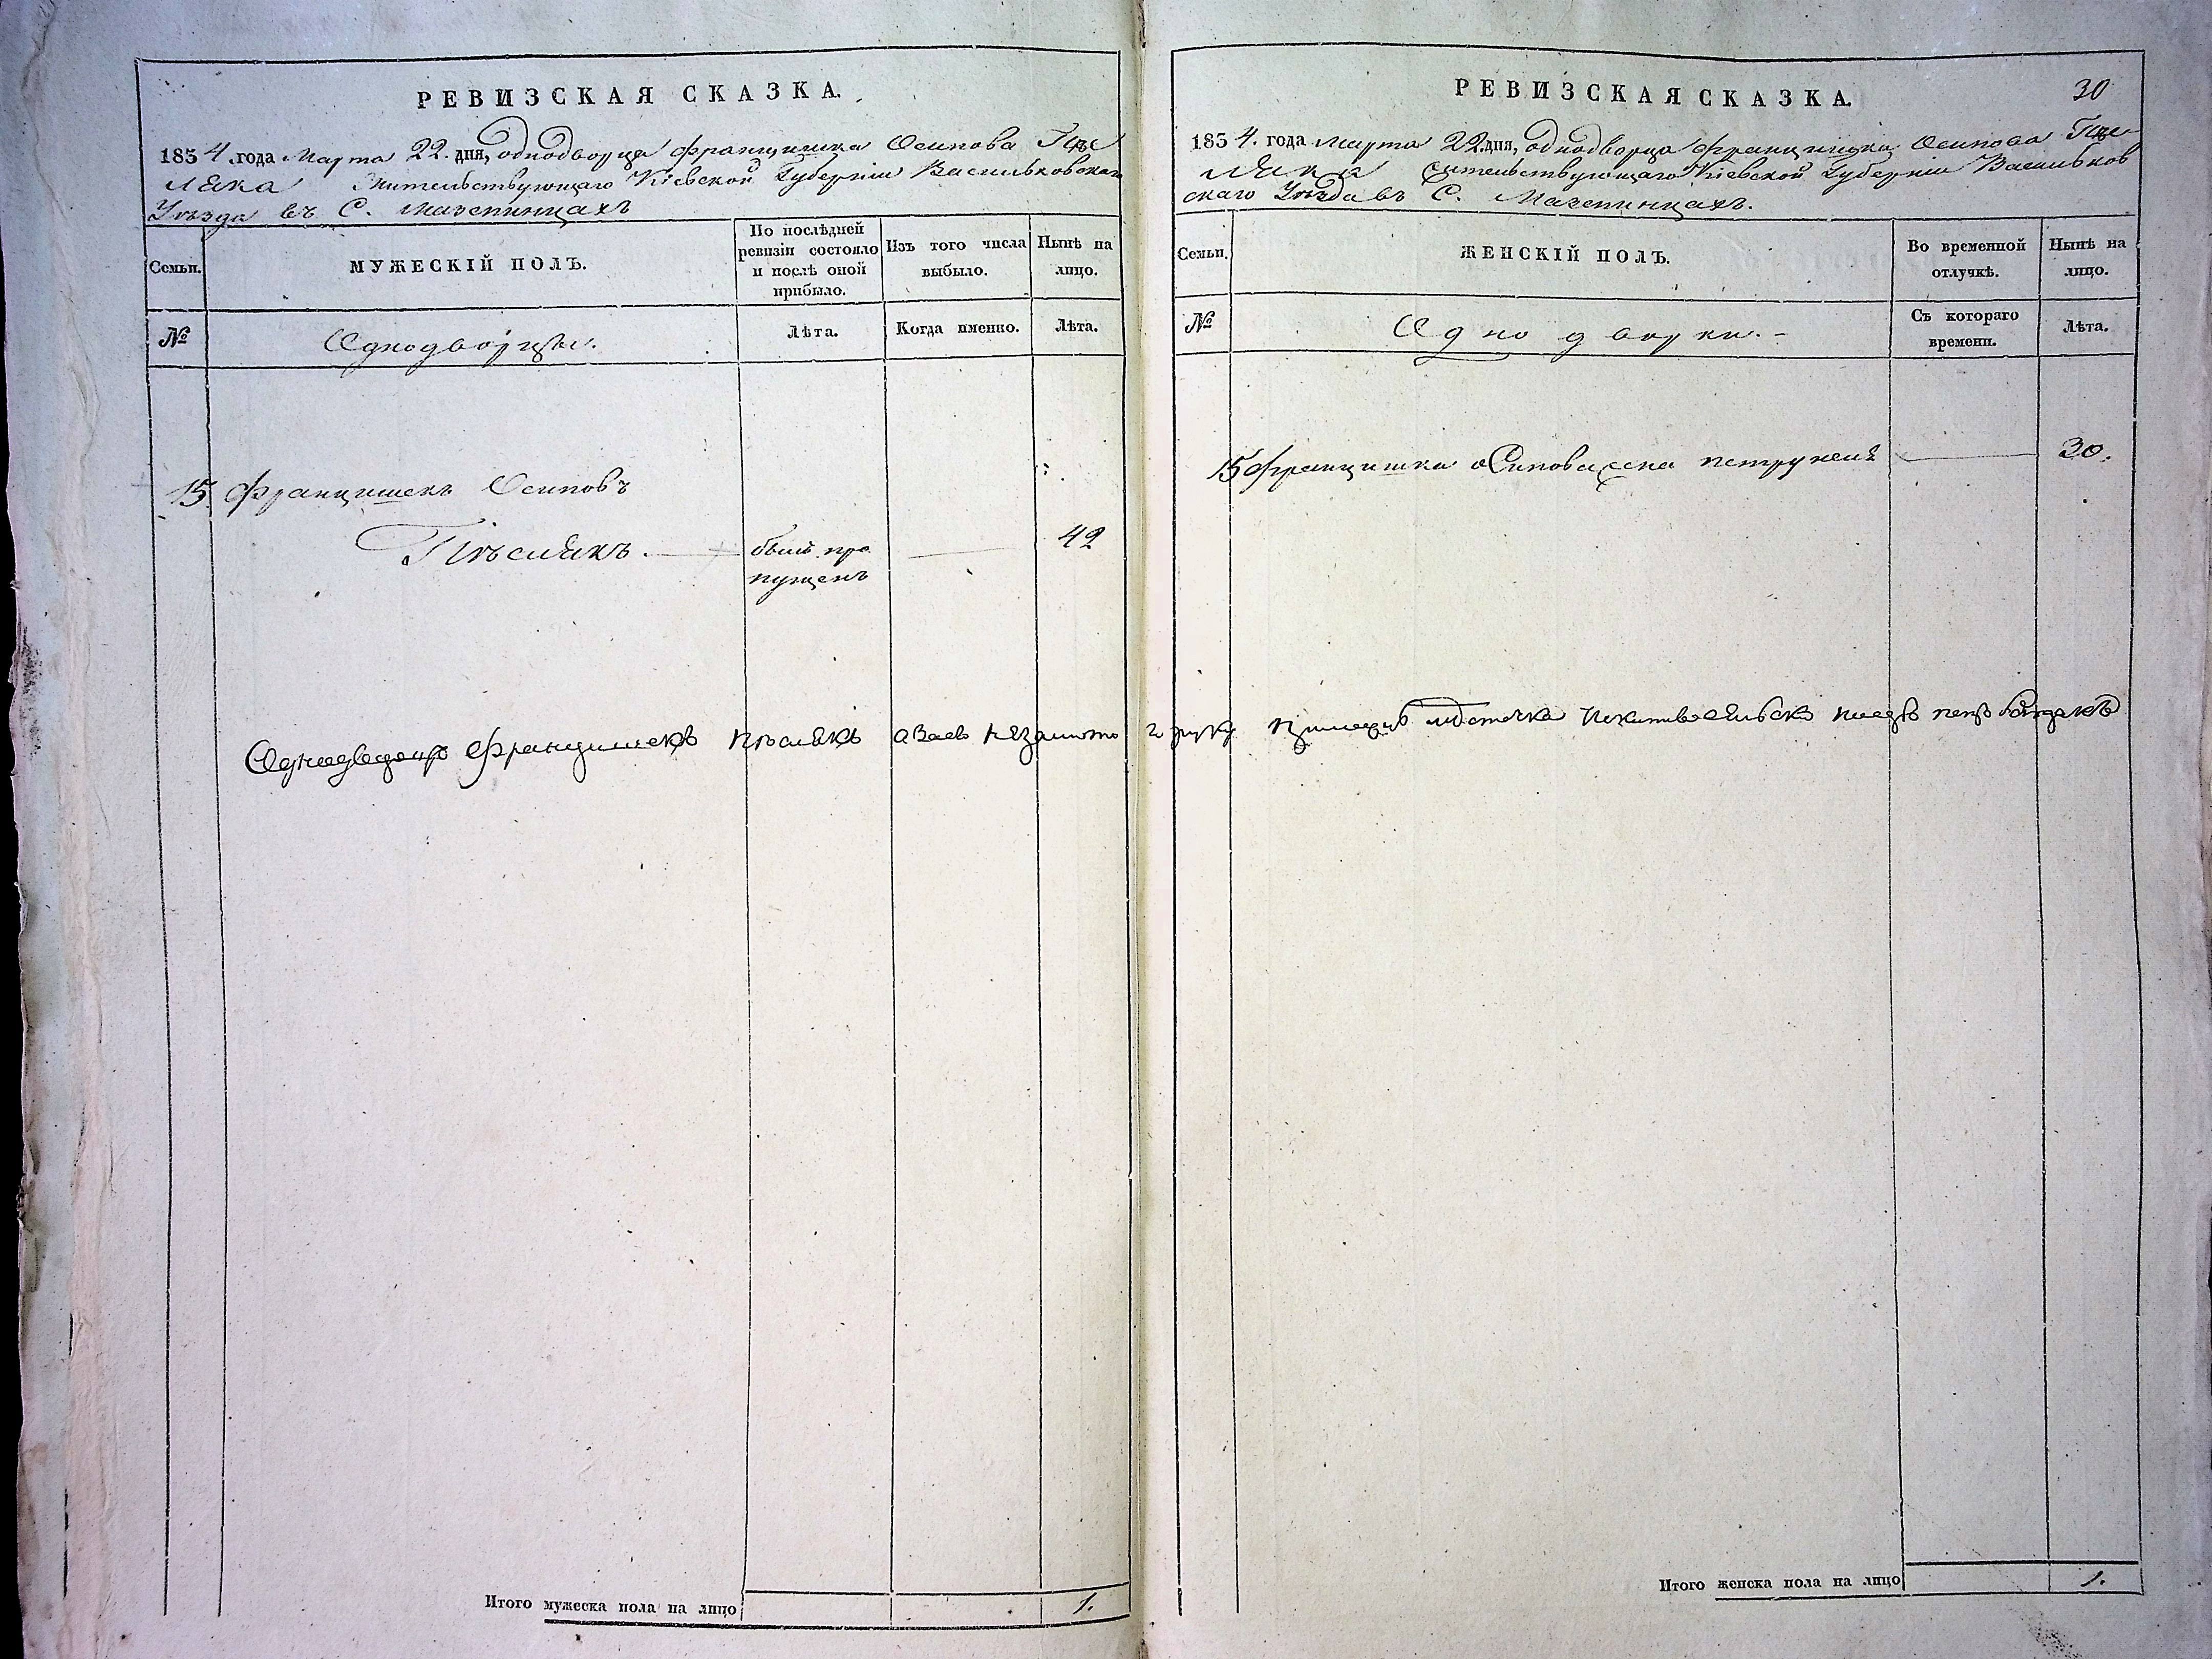 РЕВИЗСКАЯ СКАЗКА.
1854 года Марта 22 дня, однодворца Францишка Осипова Пѣс
ляка Жительствующаго Кіевской Губерніи Васильковскаго
Уѣзда въ С. Мазепинцахъ
Семьи.
МУЖЕСКІЙ ПОЛЪ.
По послѣдней ревизіи состояло и послѣ оной прибыло.
Изъ того числа выбыло.
Нынѣ на лицо.
№
Однодворцы.
Лѣта.
Когда именно.
Лѣта.
15 Францишекъ Осиповъ
Пѣслякъ.
былъ про
пущенъ
42
Однодворецъ Францишекъ Пѣслякъ а Васъ
Итого мужеска пола на лицо
1.
РЕВИЗСКАЯ СКАЗКА.
30
1854. года Марта 22 дня, однодворца Францишка Осипова Пѣс
ляка жительствующаго Кіевской Губерніи Васильков
скаго Уѣзда въ С. Мазепинцахъ.
Семьи.
ЖЕНСКІЙ ПОЛЪ.
Во временной отлучкѣ.
Нынѣ на лицо.
№
Однодворки.
Съ котораго времени.
Лѣта.
15 Францишка Осипова жена Петрунеля
30.
руку
Итого женска пола на лицо
1.